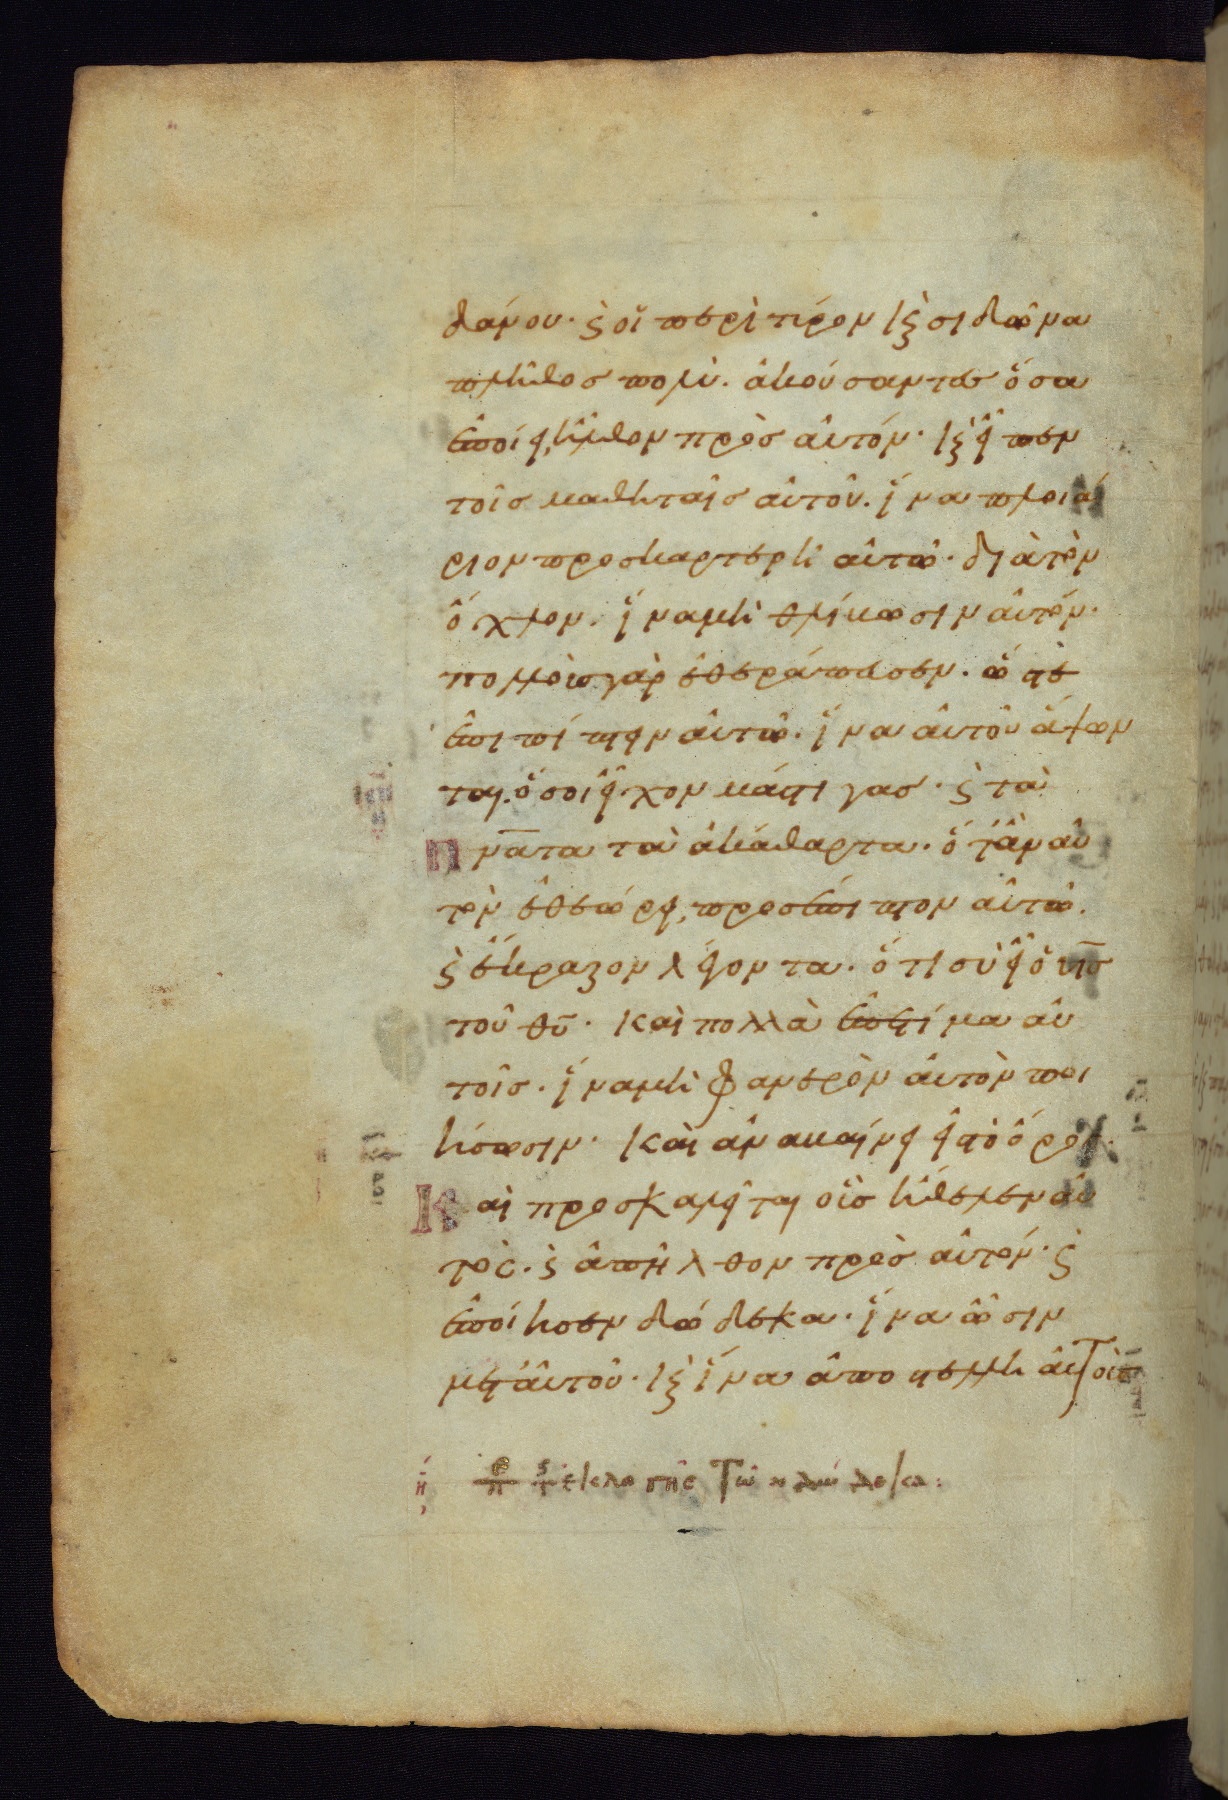 δάνου· ϗ οἱ περὶ τύρον κ̀ σιδῶνα
πλῆθος πολύ. ἀκούσαντες ὅσα
ἐποίει, ἦλθον πρὸς αὐτόν· κ̀ εἶπεν
τοῖς μαθηταῖς αὐτοῦ. ἵνα πλοιά
ριον προσκαρτερῆ αὐτῶ· διὰ τὸν
ὄχλον. ἵνα μὴ θλίβωσιν αὐτόν·
πολλοὺς γὰρ ἐθεράπευσεν. ὥστε
ἐπιπίπτειν αὐτῶ. ἵνα αὐτοῦ ἅψων
ται. ὅσοι εἶχον μάστιγας· ϗ τὰ
πν̅ατα τὰ ἀκάθαρτα. ὅταν αὐ
τὸν ἐθεώρει, προσέπιπτον αὐτῶ.
ϗ ἔκραζον λέγοντα. ὅτι σὺ εἶ ὁ υι̅ς
τοῦ θυ̅. καὶ πολλὰ ἐπετίμα αὐ
τοῖς. ἵνα μὴ φανερὸν αὐτὸν ποι
ήσωσιν. Καὶ ἀναβαίνει εἰς τὸ ὄρος.
Καὶ προσκαλεῖται οὓς ἤθελεν αὐ
τὸς. ϗ ἀπῆλθον πρὸς αὐτόν. ϗ
ἐποίησεν δώδεκα. ἵνα ὦσιν
μετ' αὐτοῦ. κ̀ ἵνα ἀποστέλλη αὐτοὺς
η ἐκλογῆς τῶν δώδεκα: